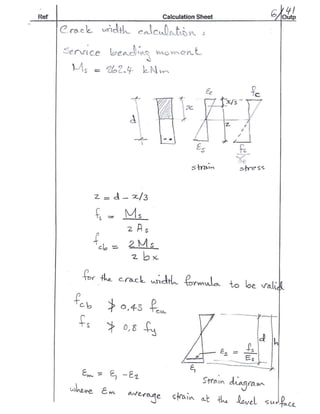 Ref Calculation Sheet 6/41 Outp
Crack width calculation :
Service bending moment
Ms = 862.4 kNm
εc fc
x x/3
d z
εs fs
strain stress
z = d - x/3
fs = Ms / z As
fcb = 2 Ms / z b x
for the crack width formula to be valid
fcb ≯ 0,43 fcu
fs ≯ 0,8 fy
d h
ε2 = fs / Es
ε1
εm = ε1 - ε2
strain diagram
where εm average strain at the level surface